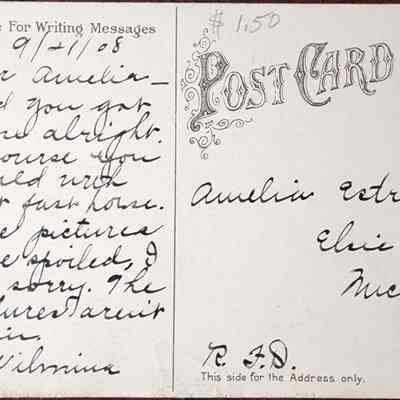 For Writing Messages
9/21/08
Amelia –
you got
alright.
course you
with
fast house.
pictures
spoiled, I
sorry. The
tures arent
Wilmina
$1.50
POST CARD
Amelia Estr
Elsie
Mic
R. F. D.
This side for the Address only.